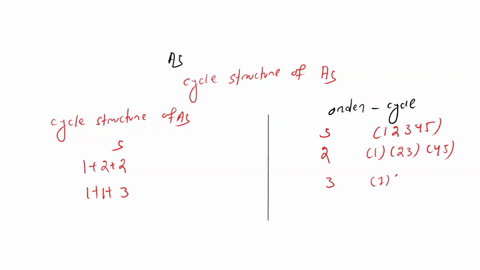 A5
cycle structure of A5
cycle structure of A5
5
1+2+2
1+1+3
order - cycle
5 (12345)
2 (1)(23)(45)
3 (3)